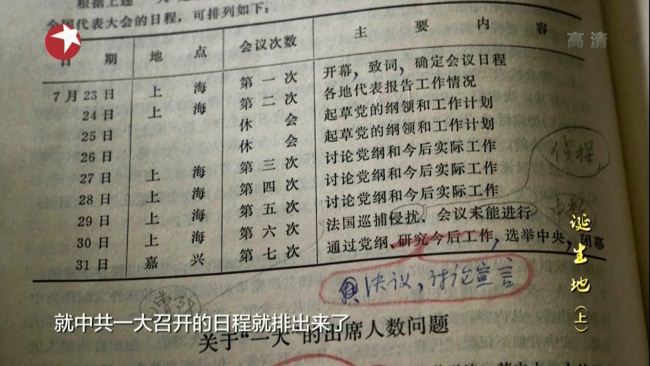 全国代表大会的日程，可排列如下：
高清
日期 地点 会议次数 主要内容
7月23日 上海 第一次 开幕，致词，确定会议日程
24日 上海 第二次 各地代表报告工作情况
25日 休会 起草党的纲领和工作计划
26日 休会 起草党的纲领和工作计划
27日 上海 第三次 讨论党纲和今后实际工作
28日 上海 第四次 讨论党纲和今后实际工作
29日 上海 第五次 讨论党纲和今后实际工作
30日 上海 第六次 法国巡捕侵扰，会议未能进行
31日 嘉兴 第七次 通过党纲，研究今后工作，选举中央，闭幕
侦探
决议，讨论宣言
诞生地（上）
就中共一大召开的日程就排出来了
关于“一大”的出席人数问题